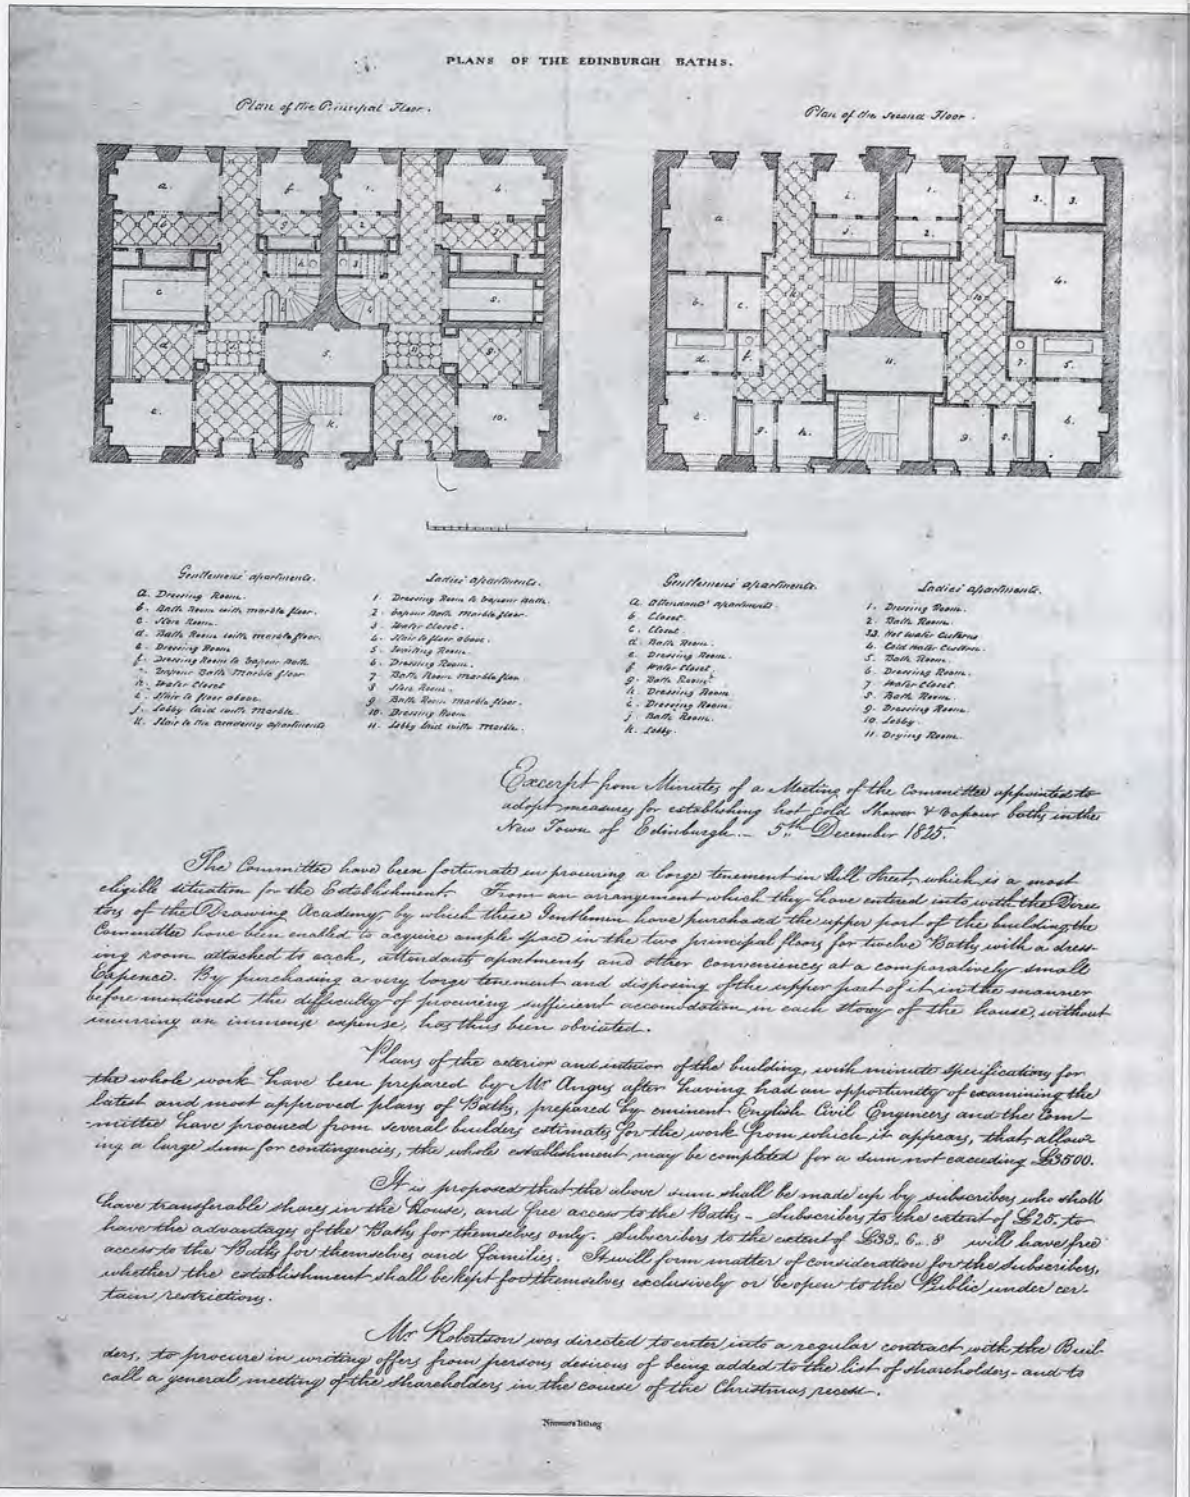 PLANS OF THE EDINBURGH BATHS.
Plan of the Principal Floor.
Plan of the second Floor.
Gentlemens' apartments.
a. Dressing Room.
b. Bath Room with marble floor.
c. Store Room.
d. Bath Room with marble floor.
e. Dressing Room
f. Dressing Room to Vapour Bath
Vapour Bath Marble floor
h. Water Closet
i. Stair to floor above.
j. Lobby laid with Marble
k. Stair to the academy apartments
Ladies' apartments.
1. Dressing Room to Vapour Bath.
2. Vapour Bath Marble floor.
3. Water Closet.
4. Stair to floor above.
5. Waiting Room.
6. Dressing Room.
7. Bath Room marble floor.
8. Store Room.
9. Bath Room marble floor.
10. Dressing Room
11. Lobby laid with Marble.
Gentlemens' apartments.
a. attendants' apartments
b. Closet.
c. Closet.
d. Bath Room.
e. Dressing Room.
f. Water Closet.
g. Bath Room.
h. Dressing Room
i. Dressing Room.
j. Bath Room.
k. Lobby.
Ladies' apartments.
1. Dressing Room.
2. Bath Room.
33. Hot water Cisterns
4. Cold water Cistern.
5. Bath Room.
6. Dressing Room.
7. Water Closet.
8. Bath Room.
9. Dressing Room.
10. Lobby.
11. Drying Room.
Excerpt from Minutes of a Meeting of the Committee appointed to
adopt measures for establishing hot cold Shower & Vapour baths in the
New Town of Edinburgh. - 5th December 1825.
The Committee have been fortunate in procuring a large tenement in Hill Street, which is a most
eligible situation for the Establishment. From an arrangement which they have entered into with the Direc
tors of the Drawing Academy, by which these Gentlemen have purchased the upper part of the building, the
Committee have been enabled to acquire ample space in the two principal floors for twelve Baths, with a dress-
ing room attached to each, attendants apartments and other conveniences at a comparatively small
Expence. By purchasing a very large tenement and disposing of the upper part of it in the manner
before mentioned the difficulty of procuring sufficient accomodation in each storey of the house, without
incurring an immense expense, has thus been obviated.
Plans of the exterior and interior of the building, with minute specifications for
the whole work have been prepared by Mr Angus after having had an opportunity of examining the
latest and most approved plans of Baths, prepared by eminent English Civil Engineers and the Com-
-mittee have procured from several builders estimates for the work from which it appears, that, allow
ing a large sum for contingencies, the whole establishment may be completed for a sum not exceeding £3500.
It is proposed that the above sum shall be made up by subscribers who shall
have transferable shares in the House, and free access to the Baths - Subscribers to the extent of £25. to
have the advantages of the Baths for themselves only. Subscribers to the extent of £33.. 6.. 8 will have free
access to the Baths for themselves and families. It will form matter of consideration for the subscribers,
whether the establishment shall be kept for themselves exclusively or be open to the Public under cer-
tain restrictions.
Mr Robertson was directed to enter into a regular contract with the Buil-
ders, to procure in writing offers from persons desirous of being added to the list of shareholders - and to
call a general meeting of the shareholders in the course of the Christmas recess.